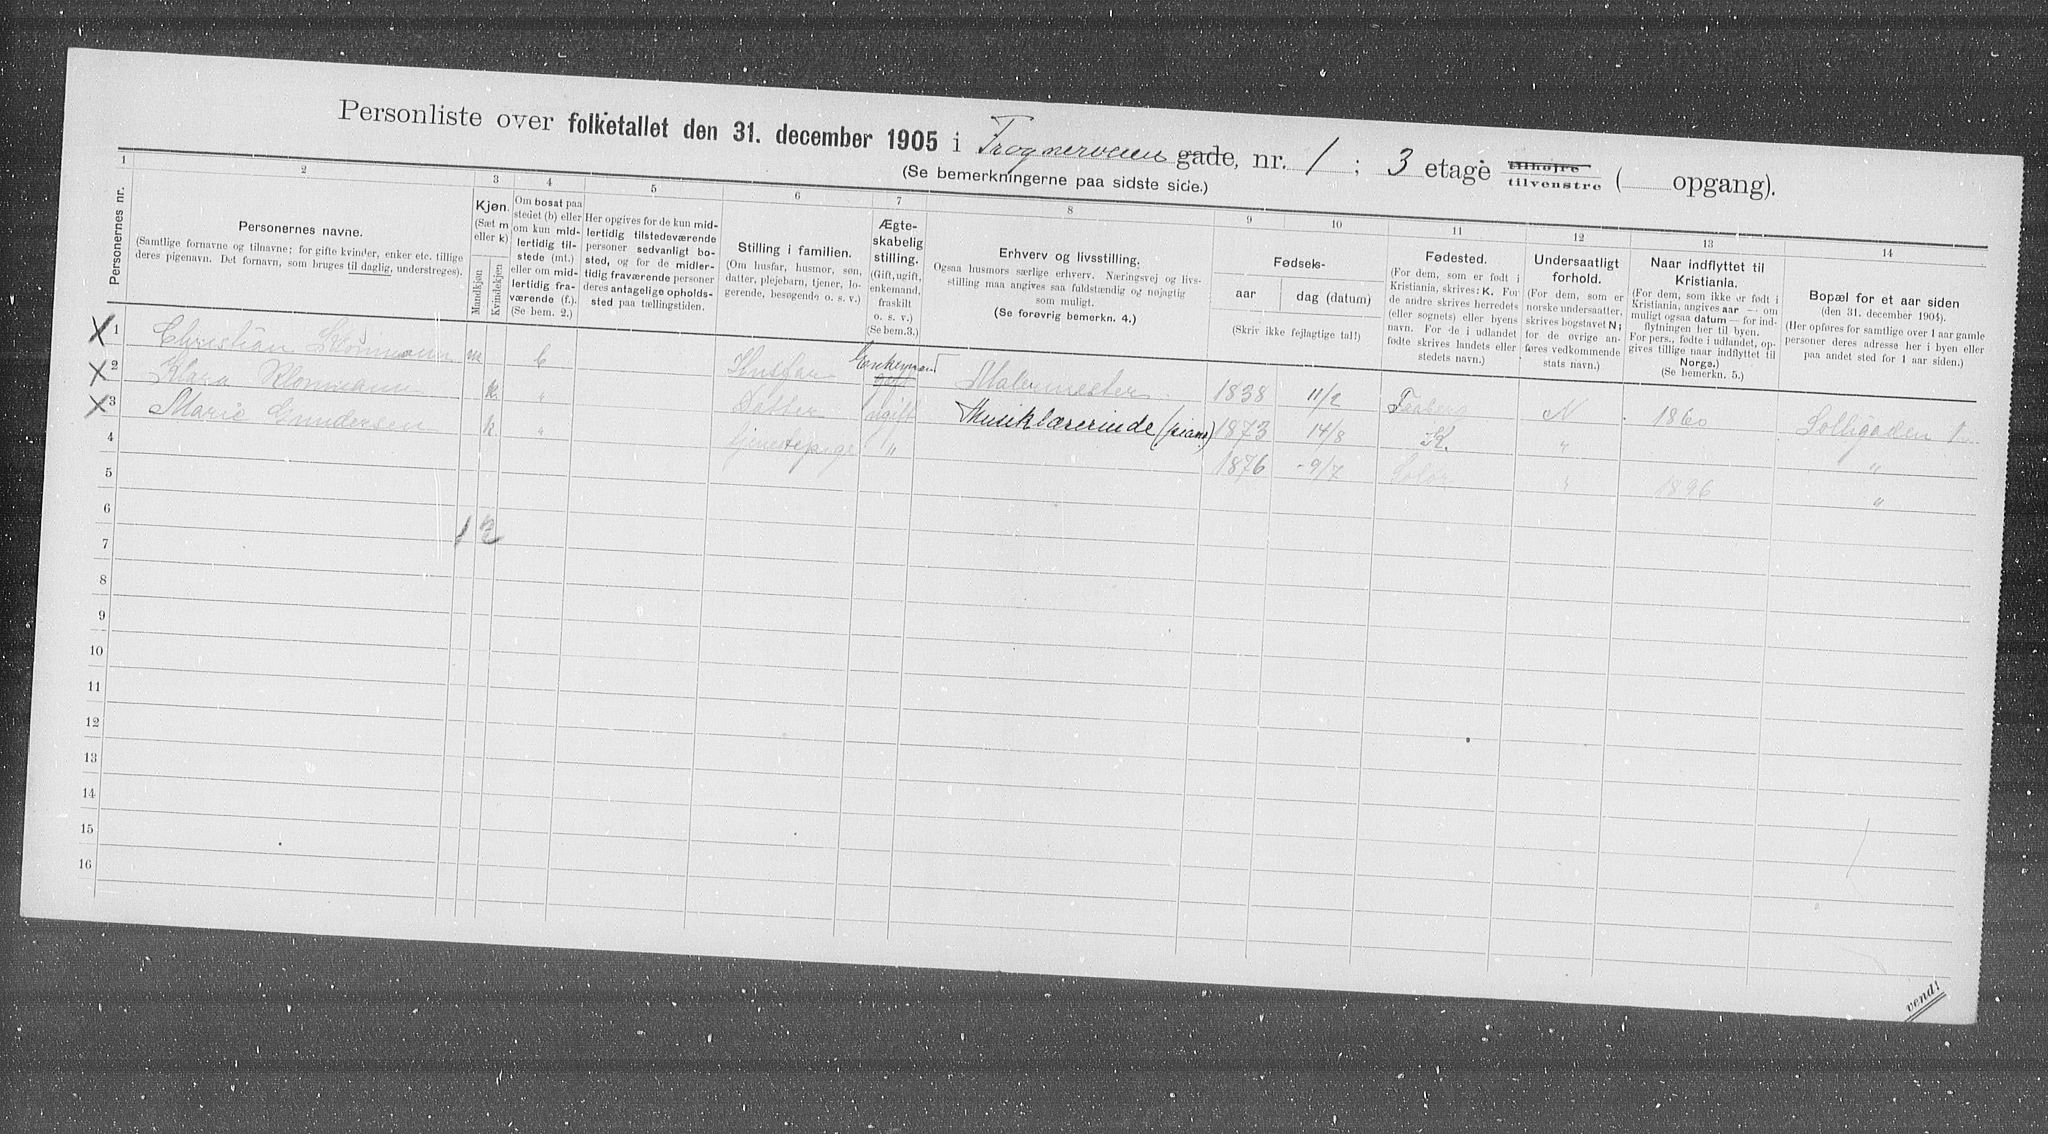 Personliste over folketallet den 31. december 1905 i Frognerveien gade, nr. 1 ; 3 etage tilhøjre tilvenstre ( opgang).
(Se bemerkningerne paa sidste side.)
1 2 3 4 5 6 7 8 9 10 11 12 13 14
Personernes nr.
Personernes navne.
(Samtlige fornavne og tilnavne; for gifte kvinder, enker etc. tillige
deres pigenavn. Det fornavn, som bruges til daglig, understreges).
Kjøn.
(Sæt m
eller k)
Mandkjøn
Kvindekjøn
Om bosat paa
stedet (b) eller
om kun mid-
lertidig til-
stede (mt.)
eller om mid-
lertidig fra-
værende (f.).
(Se bem. 2.)
Her opgives for de kun mid-
lertidig tilstedeværende
personer sedvanligt bo-
sted, og for de midler-
tidig fraværende personer
deres antagelige opholds-
sted paa tællingstiden.
Stilling i familien.
(Om husfar, husmor, søn,
datter, plejebarn, tjener, lo-
gerende, besøgende o. s. v.)
Ægte-
skabelig
stilling.
(Gift, ugift,
enkemand,
fraskilt
o. s. v.)
(Se bem. 3.)
Erhverv og livsstilling.
Ogsaa husmors særlige erhverv. Næringsvej og livs-
stilling maa angives saa fuldstændig og nøjagtig
som muligt.
(Se forøvrig bemerkn. 4.)
Fødsels-
aar dag (datum)
(Skriv ikke fejlagtige tal!)
Fødested.
(For dem, som er født i
Kristiania, skrives: K. For
de andre skrives herredets
(eller sognets) eller byens
navn. For de i udlandet
fødte skrives landets eller
stedets navn.)
Undersaatligt
forhold.
(For dem, som er
norske undersaatter,
skrives bogstavet N;
for de øvrige an-
føres vedkommende
stats navn.)
Naar indflyttet til
Kristiania.
(For dem, som ikke er født i
Kristiania, angives aar — om
muligt ogsaa datum — for ind-
flytningen her til byen.
For pers., fødte i udlandet, op-
gives tillige naar indflyttet til
Norge.)
(Se bemerkn. 5.)
Bopæl for et aar siden
(den 31. december 1904).
(Her opføres for samtlige over 1 aar gamle
personer deres adresse her i byen eller
paa andet sted for 1 aar siden.)
X 1 Christian m b Husfar Enkemand gift Malermester 1838 11/2 Faaberg N 1860 Solligaden 1
X 2 Klara k. " Datter ugift Musiklærerinde (piano) 1873 14/8 K. " "
X 3 Marie Gundersen k " tjenestepige " 1876 9/7 Solør " 1896 "
4
5
6
1 2
7
8
9
10
11
12
13
14
15
16
vend!